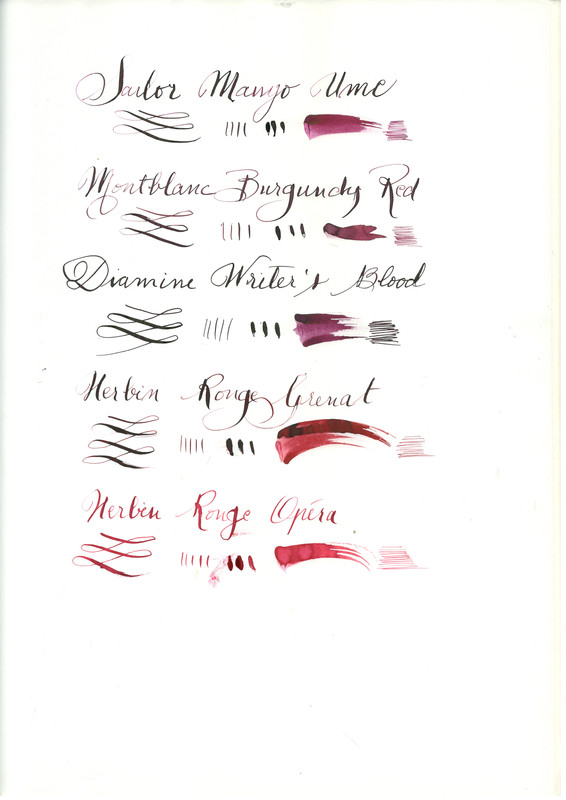 Sailor Manyo Ume
Montblanc Burgundy Red
Diamine Writer's Blood
Herbin Rouge Grenat
Herbin Rouge Opéra